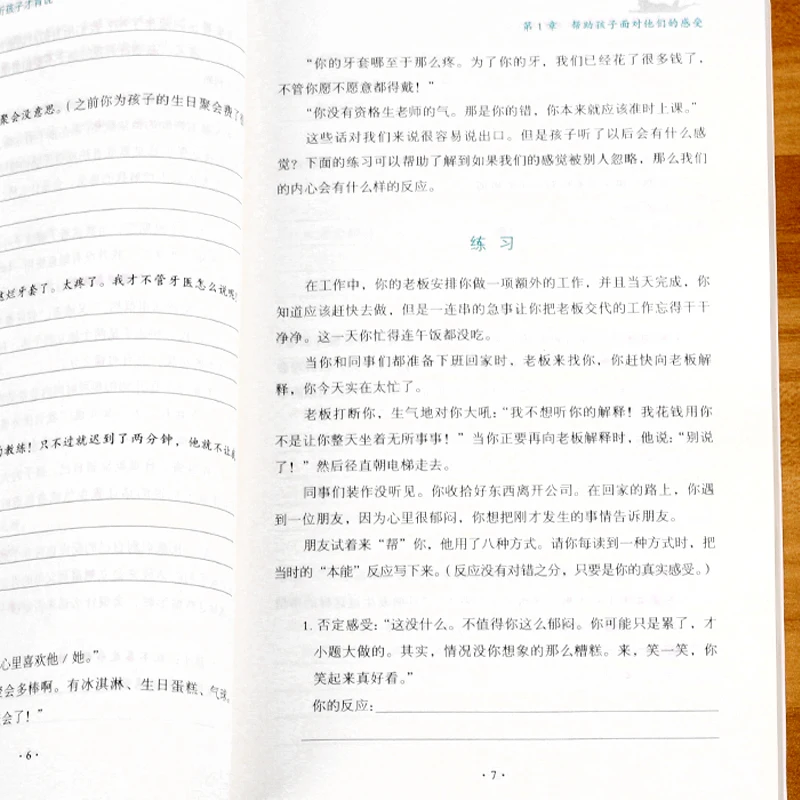 孩子才肯说
聚会没意思。（之前你为孩子的生日聚会费了
烂牙套了。太疼了。我才不管牙医怎么说呢！
教练！只不过就迟到了两分钟，他就不让
心里喜欢他/她。”
会多棒啊。有冰淇淋、生日蛋糕、气球，
会了！”
·6·
第1章 帮助孩子面对他们的感受
“你的牙套哪至于那么疼。为了你的牙，我们已经花了很多钱了，
不管你愿不愿意都得戴！”
“你没有资格生老师的气。那是你的错，你本来就应该准时上课。”
这些话对我们来说很容易说出口。但是孩子听了以后会有什么感
觉？下面的练习可以帮助了解到如果我们的感觉被别人忽略，那么我们
的内心会有什么样的反应。
练习
在工作中，你的老板安排你做一项额外的工作，并且当天完成，你
知道应该赶快去做，但是一连串的急事让你把老板交代的工作忘得干干
净净。这一天你忙得连午饭都没吃。
当你和同事们都准备下班回家时，老板来找你，你赶快向老板解
释，你今天实在太忙了。
老板打断你，生气地对你大吼：“我不想听你的解释！我花钱用你
不是让你整天坐着无所事事！”当你正要再向老板解释时，他说：“别说
了！”然后径直朝电梯走去。
同事们装作没听见。你收拾好东西离开公司。在回家的路上，你遇
到一位朋友，因为心里很郁闷，你想把刚才发生的事情告诉朋友。
朋友试着来“帮”你，他用了八种方式。请你每读到一种方式时，把
当时的“本能”反应写下来。（反应没有对错之分，只要是你的真实感受。）
1. 否定感受：“这没什么。不值得你这么郁闷。你可能只是累了，才
小题大做的。其实，情况没你想象的那么糟糕。来，笑一笑，你
笑起来真好看。”
你的反应：
·7·